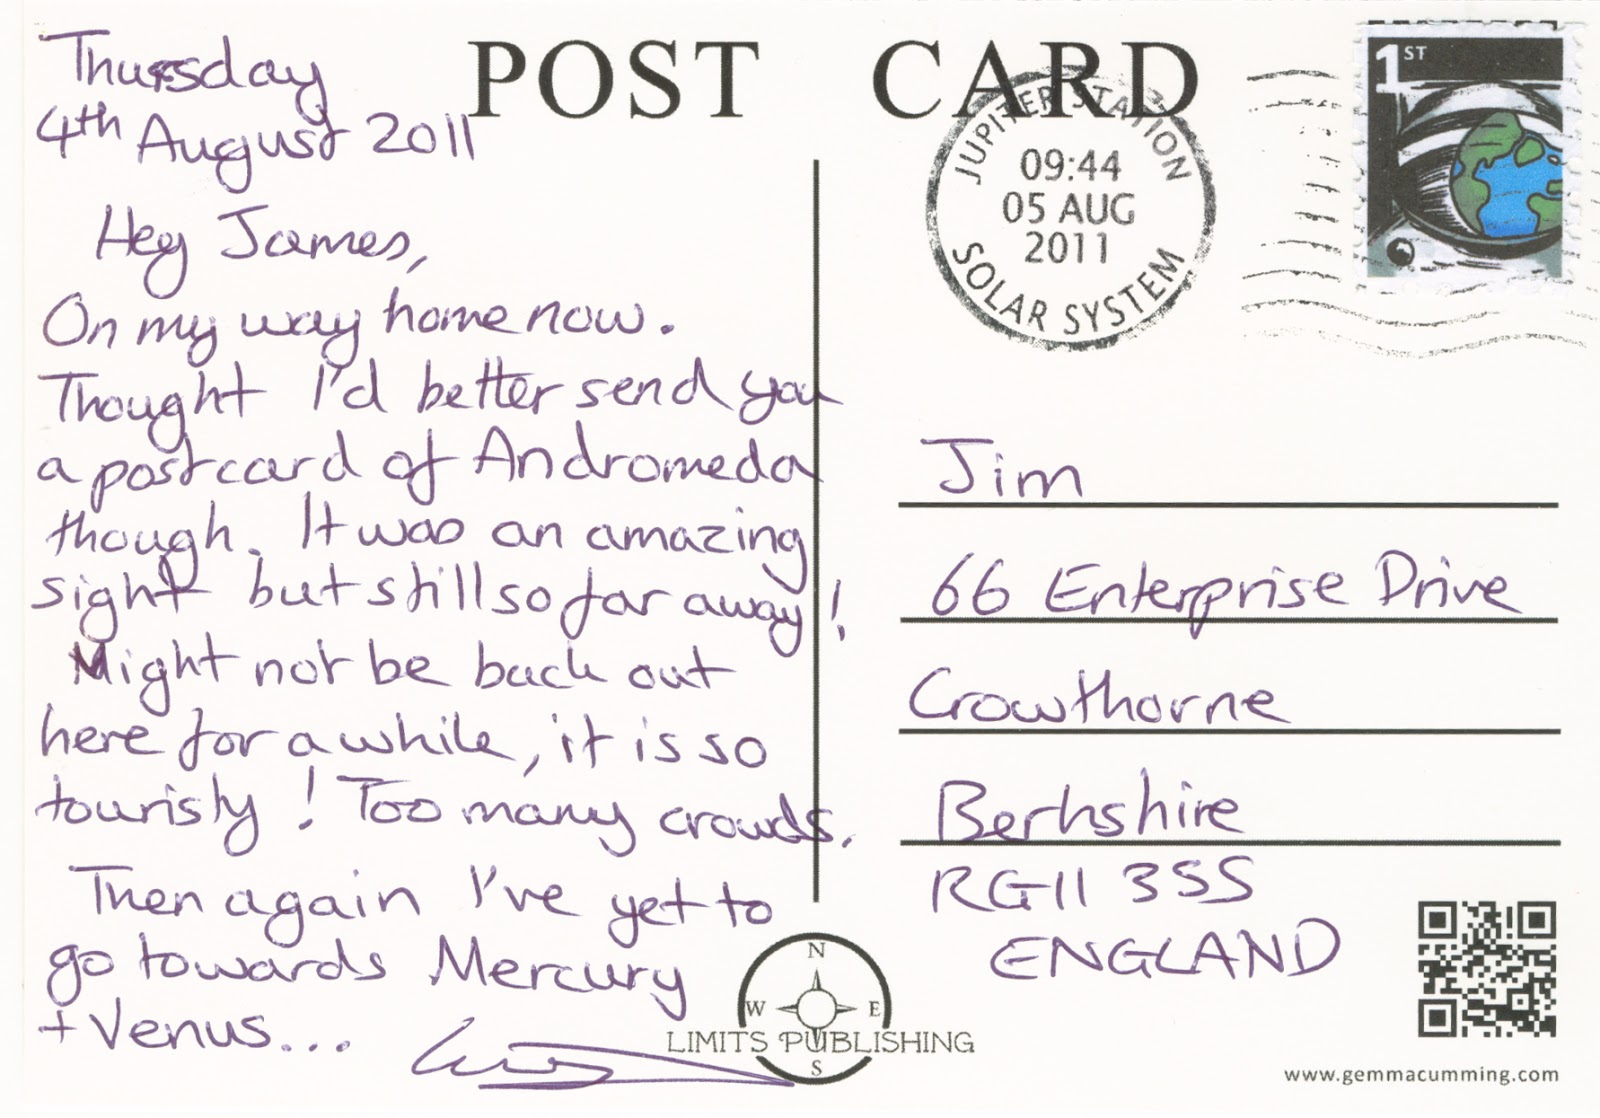 POST CARD
Thursday
4th August 2011
Hey James,
On my way home now.
Thought I'd better send you
a postcard of Andromeda
though. It was an amazing
sight but still so far away!
Might not be back out
here for a while, it is so
touristy! Too many crowds.
Then again I've yet to
go towards Mercury
+ Venus...
JUPITER STATION
09:44
05 AUG
2011
SOLAR SYSTEM
1ST
Jim
66 Enterprise Drive
Crowthorne
Berkshire
RG11 3SS
ENGLAND
N
W E
LIMITS PUBLISHING
S
www.gemmacumming.com